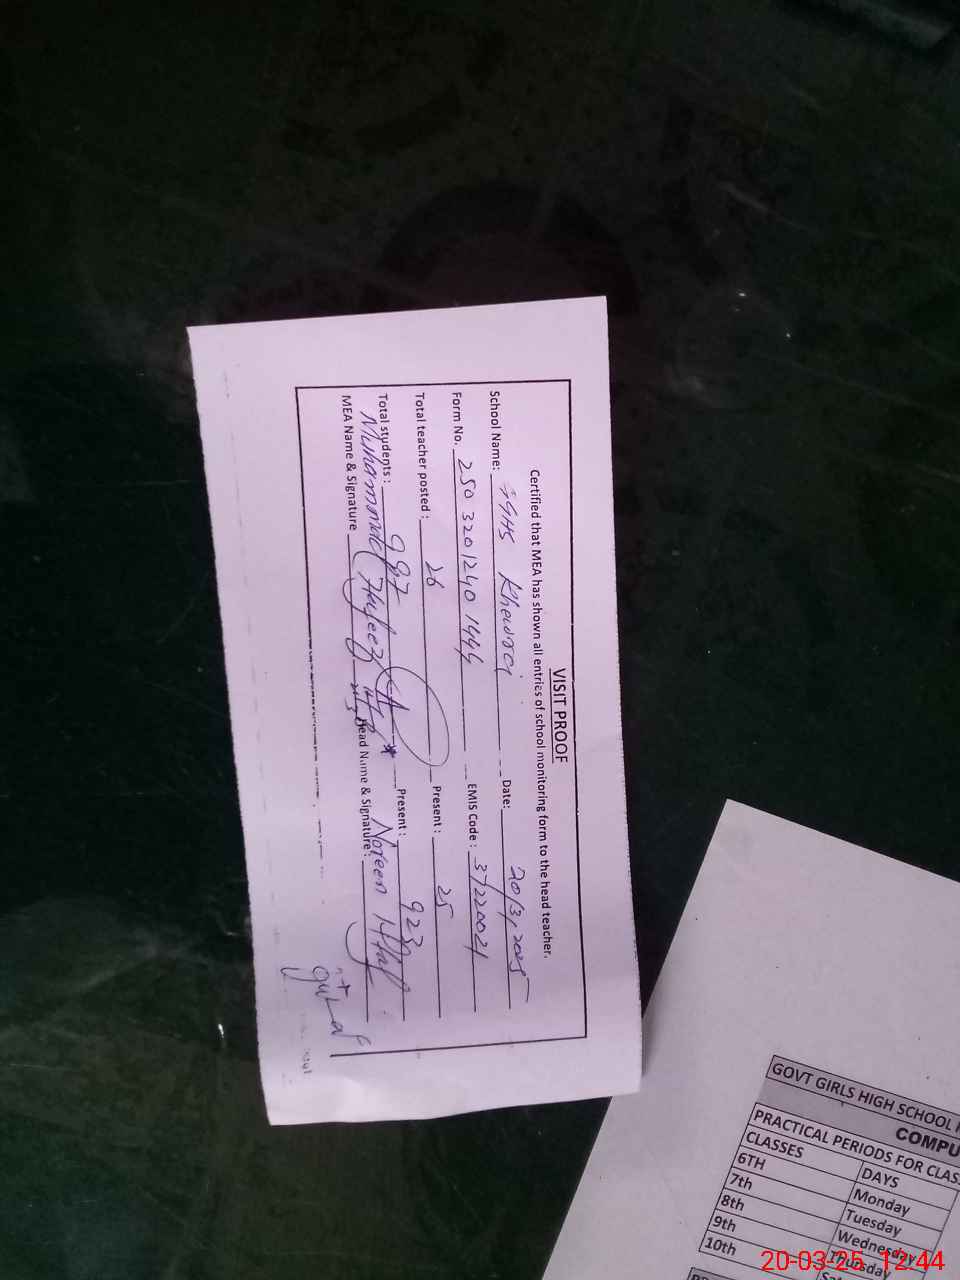 VISIT PROOF
Certified that MEA has shown all entries of school monitoring form to the head teacher.
School Name: GGHS Khewra Date: 20/3/2025
Form No. 250 320 1240 1444 EMIS Code: 37220021
Total teacher posted: 26 Present: 25
Total students: 987 Present: 923
MEA Name & Signature Muhammad Hafeez Head Name & Signature: Noreen Altaf
GOVT GIRLS HIGH SCHOOL
COMPU
PRACTICAL PERIODS FOR CLAS
CLASSES DAYS
6TH Monday
7th Tuesday
8th Wednesday
9th Thursday
10th
20-03-25 12:44